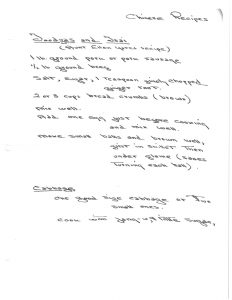 Chinese Recipes
Sausages and Meat
(Aunt Ellen Lyres recipe)
1 lb ground pork or pork sausage
½ lb ground beef
Salt, sugar, 1 teaspoon finely chopped
ginger root.
2 or 3 cups bread crumbs (brown)
Mix well.
Add one egg just before cooking
and mix well.
Make small balls and brown well,
just in skillet then
under flame (saves
turning each ball).
Cabbage
One good size cabbage or two
small ones.
Cook until, little sugar,